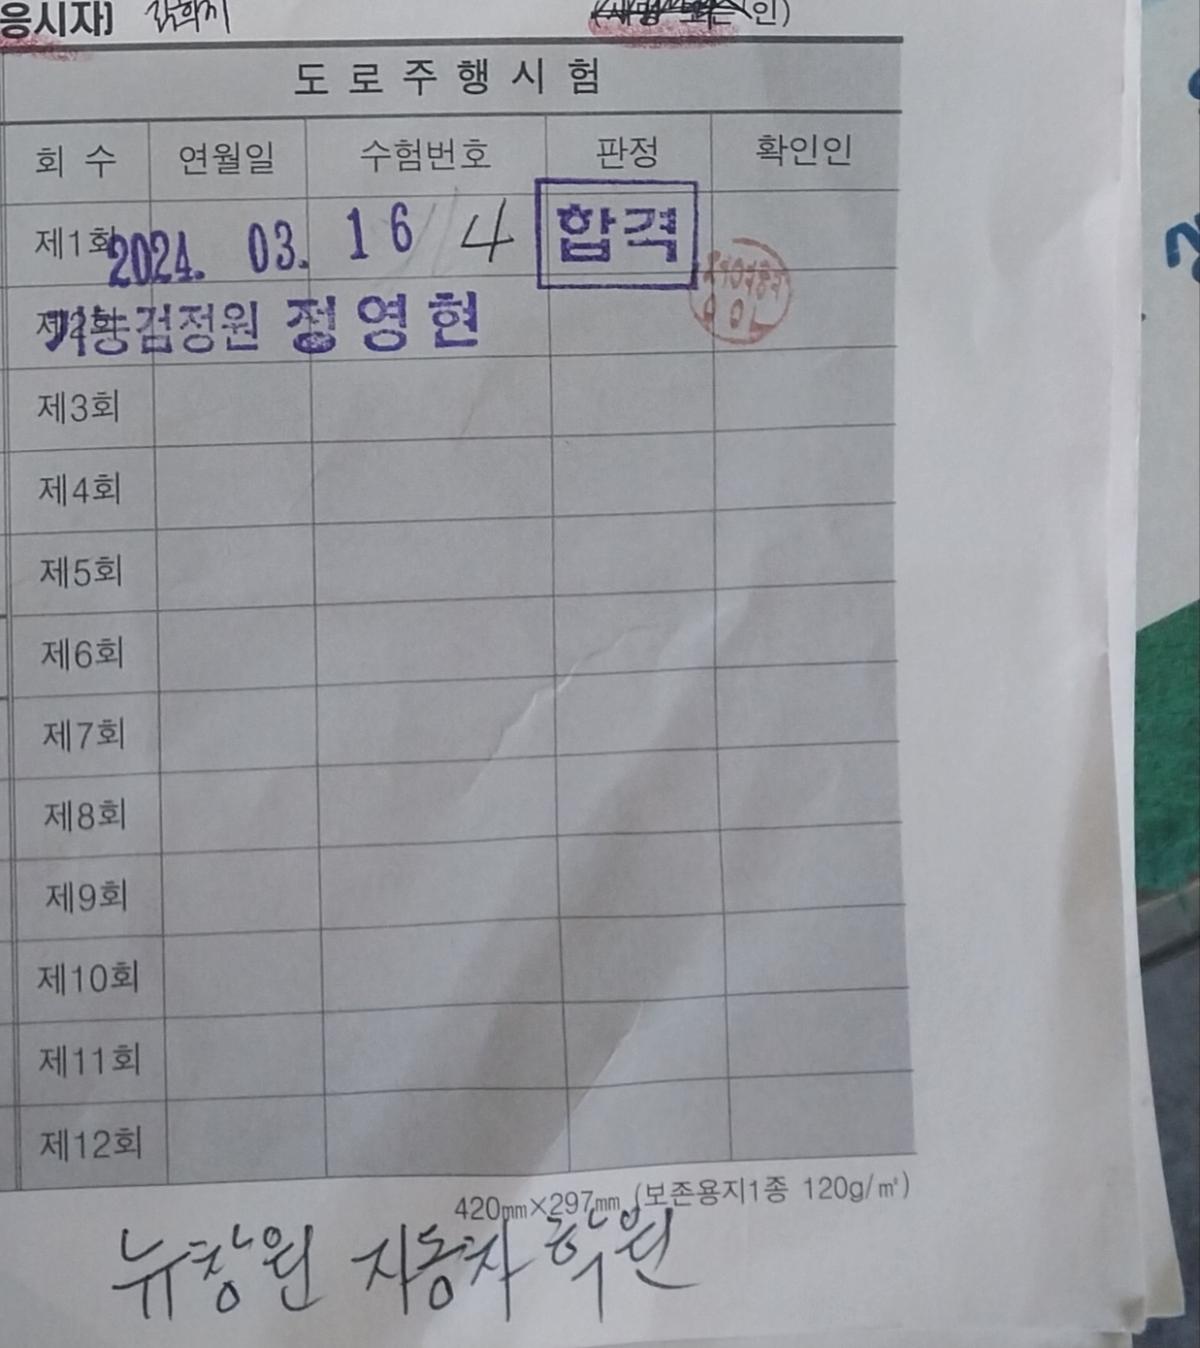 응시자 인)
도로주행시험
회 수 연월일 수험번호 판정 확인인
제1회 2024. 03. 16 4 합격
제2회 기능검정원 정영현
제3회
제4회
제5회
제6회
제7회
제8회
제9회
제10회
제11회
제12회
420㎜×297㎜ (보존용지1종 120g/㎡)
뉴창원 자동차학원